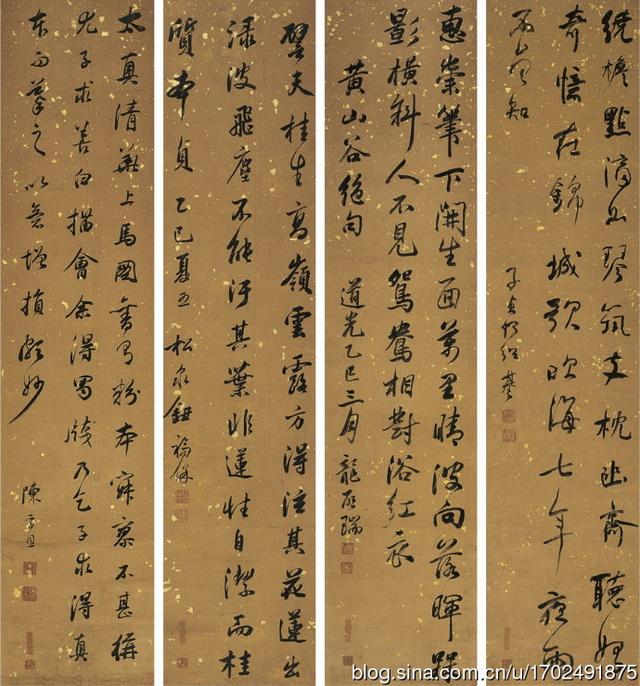 繞檐點滴如琴筑支枕幽齋聽始
奇憶在錦城歌吹海七年夜雨
不曾知
子貞何紹基
惠崇筆下開生面萬里晴波向落暉梅
影橫斜人不見鴛鴦相對浴紅衣
黃山谷絕句 道光乙巳三月 龍啟瑞
譬夫桂生高嶺雲露方得泫其花蓮出
淥波飛塵不能汙其葉非蓮性自潔而桂
質本貞 乙巳夏五 松泉鈕福保
太真清華上馬圖舊有粉本寂寥不甚稱
尤子求善白描會余得蜀牋乃乞子求得真
本而摹之以意增損頗妙
陳孚恩
blog.sina.com.cn/u/1702491875